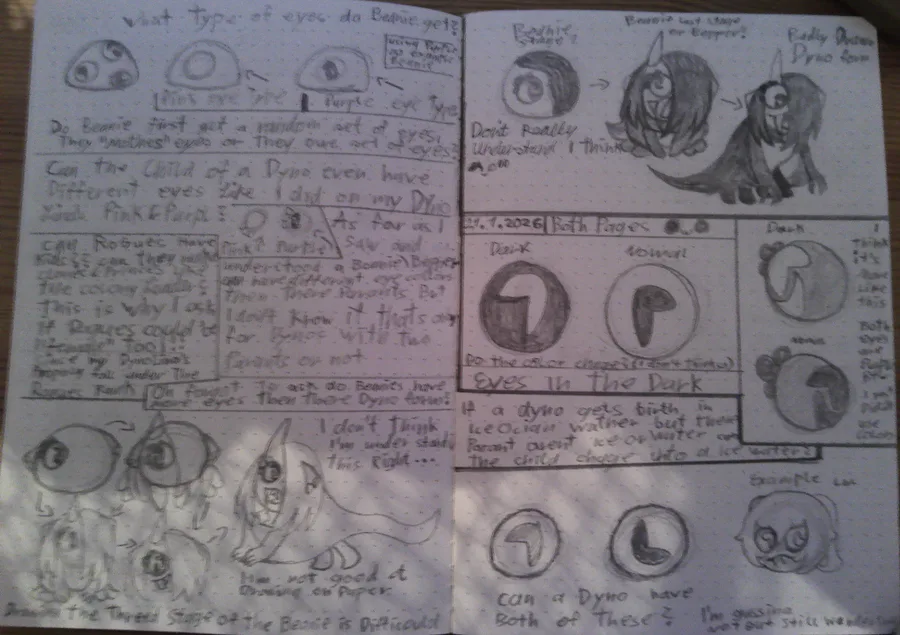 What Type of eyes do Beanie get?
using Purple
as example
Beanie
Pink eye Type
Purple eye Type
Do Beanie first get a random set of eyes,
They "mothers" eyes or They own set of eyes?
Can the Child of a Dyno even have
Different eyes like I did on my Dyno
kinda Pink & Purpl
Pink? Purple
As far as I
saw and
understood a Beanie/Bepper
can have different eye colors
Then There Parants But
I don't know if that's only
for Dynos with two
Parants or not
can Rogues have
kids
The colony Leaders
This is why I ask
If Rogues could be
too!..
Rogues Ranth
Oh forgot To ask do Beanies have
more eyes Then There Dyno form?
I don't Think
I'm under standing
This Right...
I'm not good at
Drawing on Paper.
Drawing the Three Stage of the Beanie is Difficould
Beanie
Stage?
Beanie last stage
or Bepper?
Badly Drawn
Dyno form
Don't Really
understand I think
21.1.2026 Both Pages
Dark
Normal
Do the color change? (I don't think so)
Eyes in The Dark
Dark
I
Think
it's
more
Like
this
Both
eyes
are
Purple
use
colors
If a dyno gets birth in
Ice Ocian wather but there
Parant arent ice or water can
the child change into a ice water?
Example
can a Dyno have
Both of These?
I'm guessing
not but still wondering